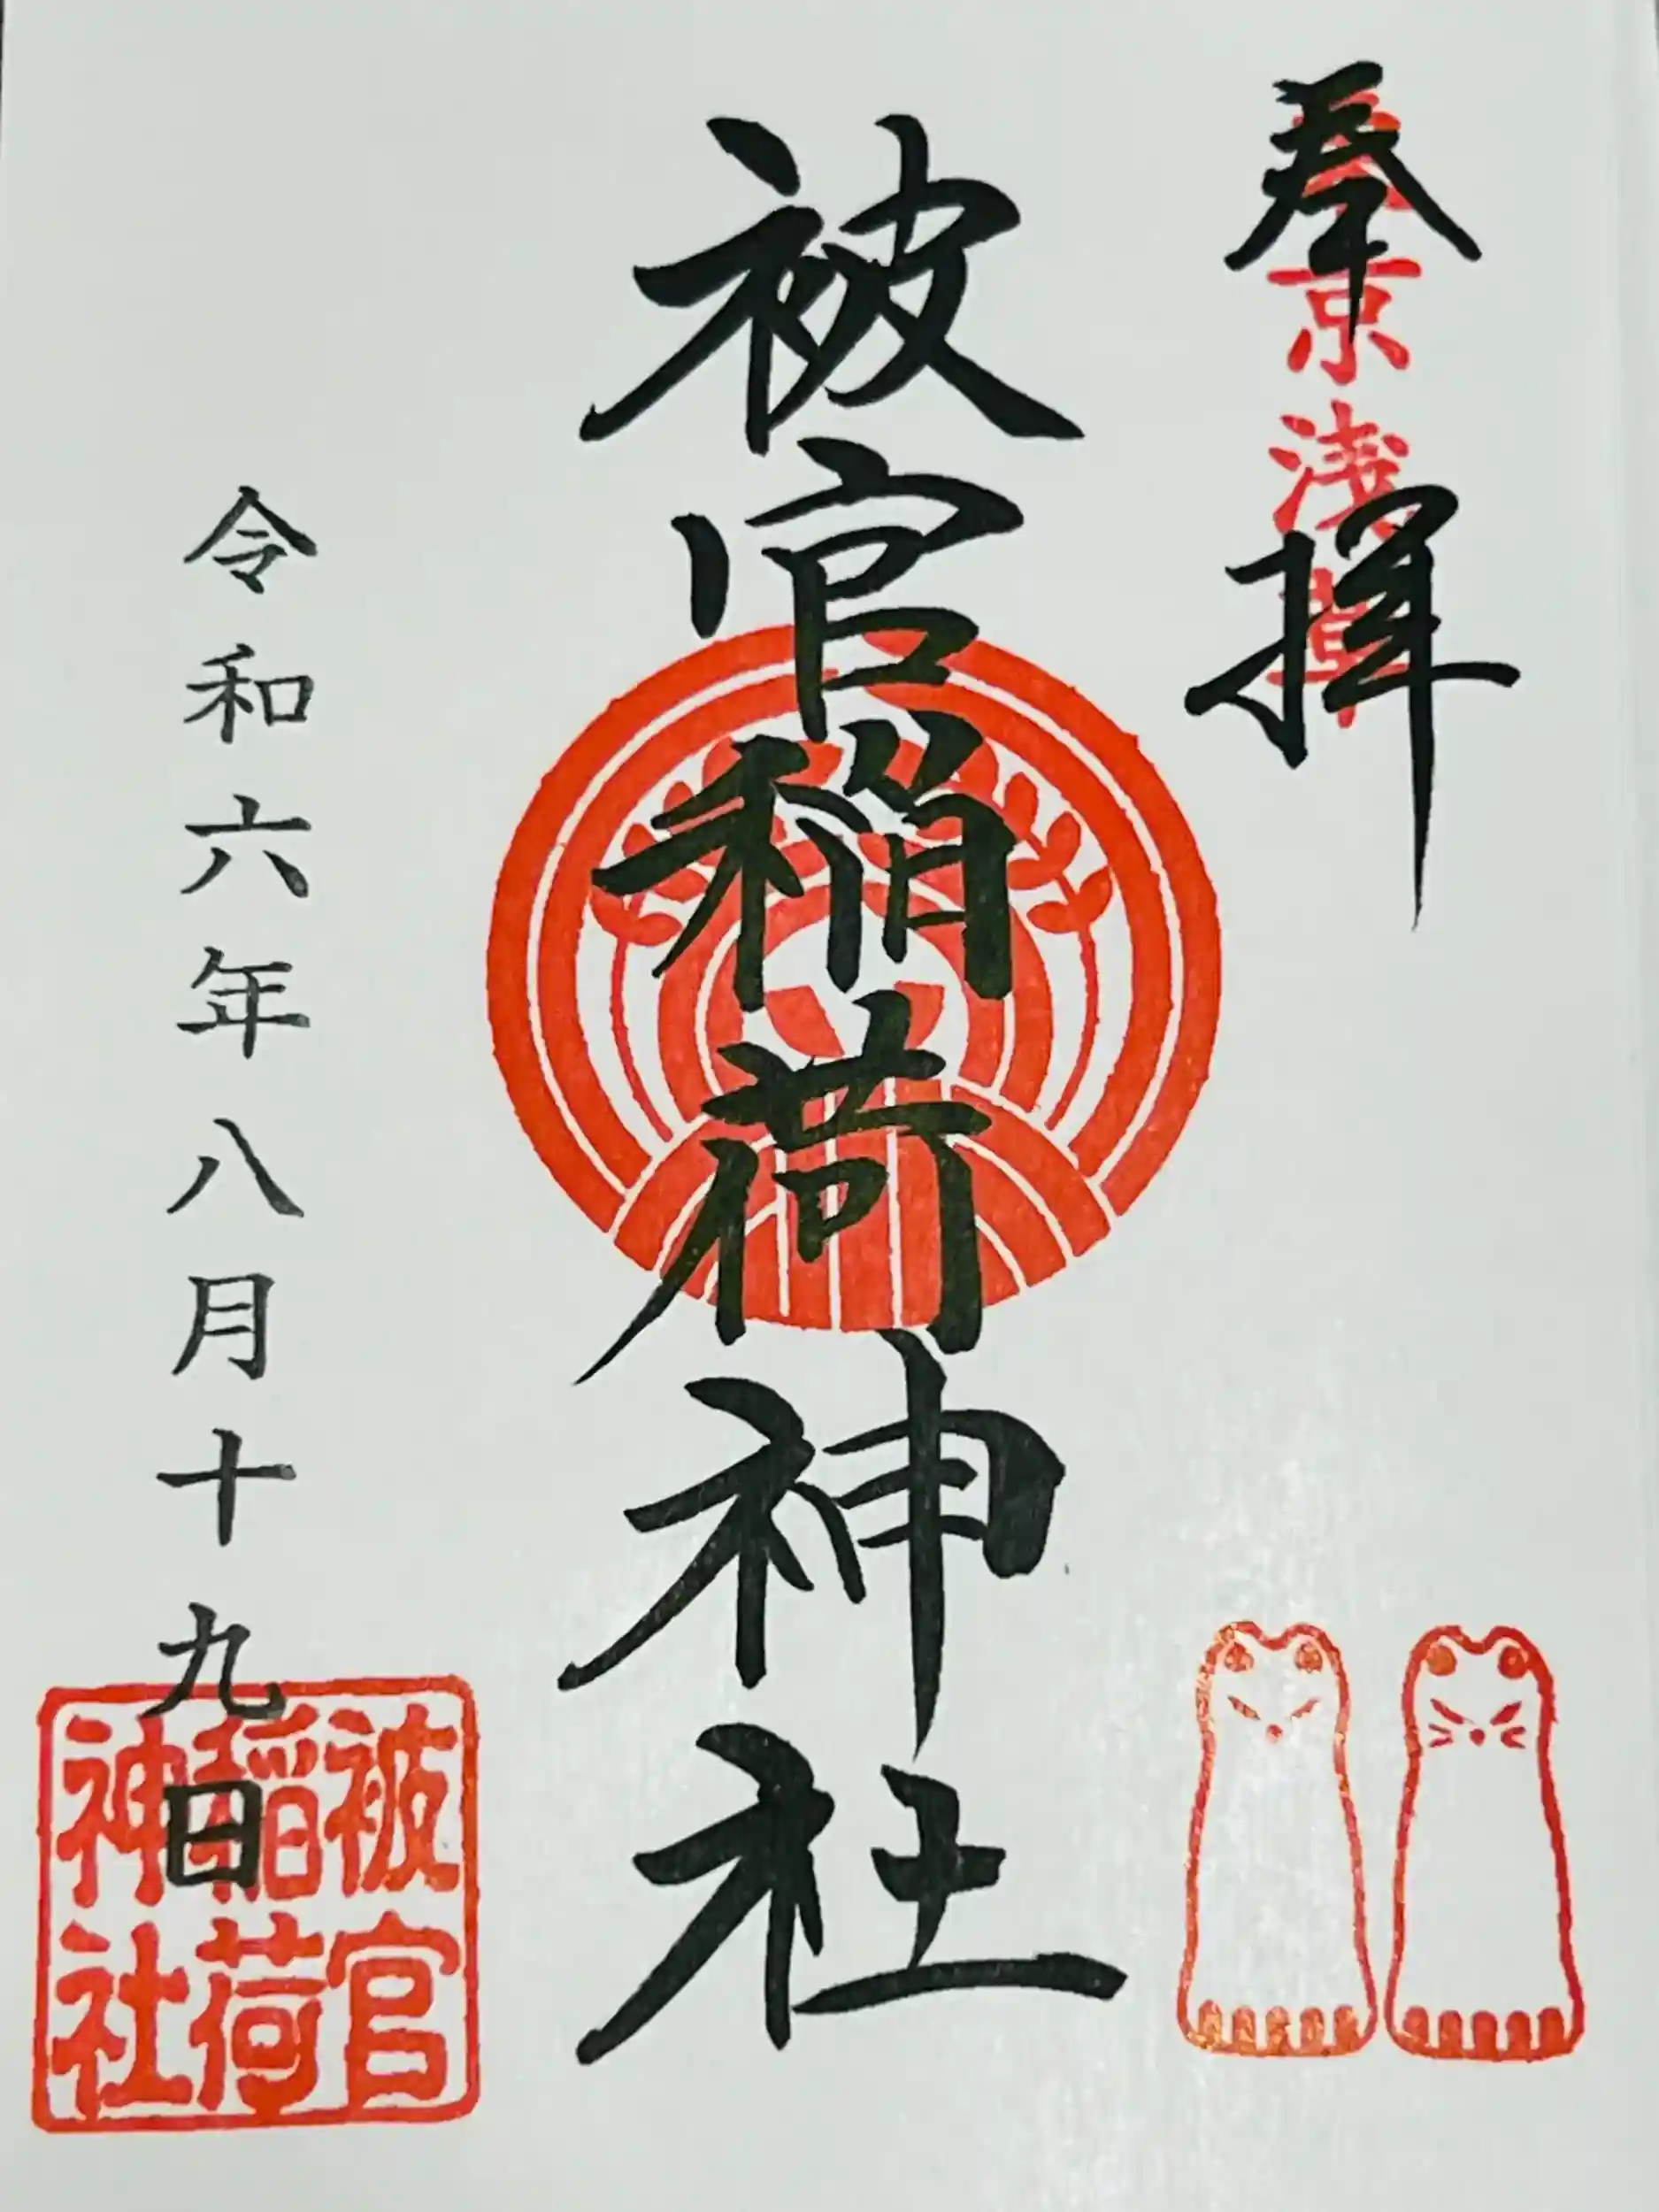 奉拝
東京浅草
被官稲荷神社
令和六年八月十九日
被官
稲荷
神社